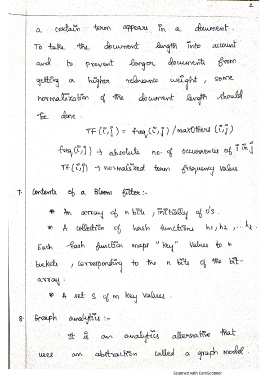 2
a certain term appears in a document.
To take the document length into account
and to prevent longer documents from
getting a higher relevance weight, some
normalization of the document length should
be done.
TF (i,j) = freq (i,j) / maxOthers (i,j)
freq (i,j) → absolute no. of occurrences of i in j
TF (i,j) → normalized term frequency value
7. Contents of a Bloom filter:-
* An array of n bits, initially of 0's.
* A collection of hash functions h1, h2, ... hk.
Each hash function maps "key" values to n
buckets, corresponding to the n bits of the bit-
array.
* A set S of m key values.
8. Graph analytics :-
It is an analytics alternative that
uses an abstraction called a graph model
Scanned with CamScanner